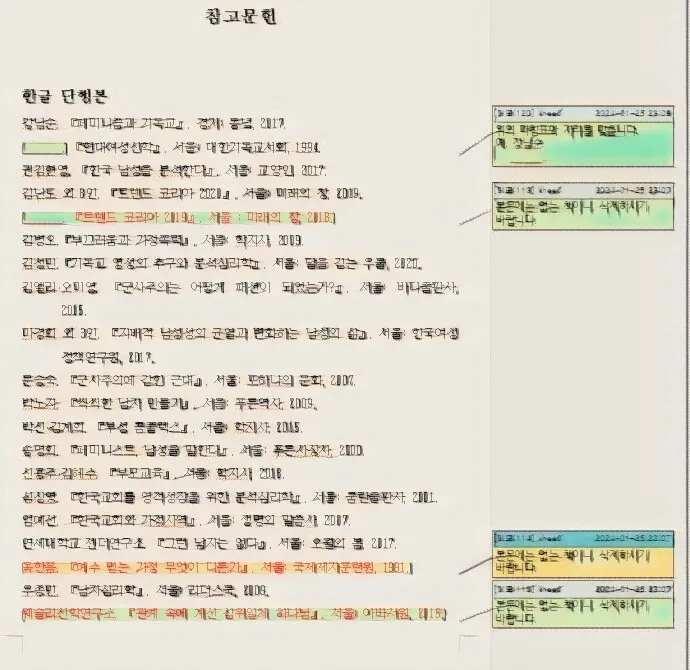 참고문헌
한글 단행본
강남순. 『페미니즘과 기독교』. 경기: 동녘, 2017.
『현대여성신학』. 서울: 대한기독교서회, 1994.
권김현영. 『한국 남성을 분석한다』. 서울: 교양인, 2017.
김난도 외 8인. 『트렌드 코리아 2020』. 서울: 미래의 창, 2019.
『트렌드 코리아 2019』. 서울: 미래의 창, 2018.
김병오. 『부끄러움과 가정폭력』. 서울: 학지사, 2009.
김정민. 『기독교 영성의 추구와 분석심리학』. 서울: 달을 긷는 우물, 2020.
김엘리·오미영. 『군사주의는 어떻게 패션이 되었는가?』. 서울: 바다출판사,
2015.
마경희 외 3인. 『지배적 남성성의 균열과 변화하는 남성의 삶』. 서울: 한국여성
정책연구원, 2017.
문승숙. 『군사주의에 갇힌 근대』. 서울: 또하나의 문화, 2007.
박노자. 『씩씩한 남자 만들기』. 서울: 푸른역사, 2009.
박선·김계희. 『부성 콤플렉스』. 서울: 학지사, 2015.
송명희. 『페미니스트, 남성을 말한다』. 서울: 푸른사상사, 2000.
신용주·김혜수. 『부모교육』. 서울: 학지사, 2016.
『한국교회를 영적성장을 위한 분석심리학』. 서울: 쿰란출판사, 2001.
염예선. 『한국교회와 가정사역』. 서울: 생명의 말씀사, 2007.
연세대학교 젠더연구소. 『그런 남자는 없다』. 서울: 오월의 봄, 2017.
『예수 믿는 가정 무엇이 다른가』. 서울: 국제제자훈련원, 1991.
우종민. 『남자심리학』. 서울: 리더스북, 2009.
웨슬리신학연구소. 『관계 속에 계신 삼위일체 하나님』. 서울: 아바서원, 2015.
2024-01-25 23:08
위의 마침표와 자리를 맞춥니다.
예. 강남순
2024-01-25 23:07
본문에는 없는 책이니 삭제하시기
바랍니다.
2024-01-25 23:07
본문에는 없는 책이니 삭제하시기
바랍니다.
2024-01-25 23:07
본문에는 없는 책이니 삭제하시기
바랍니다.